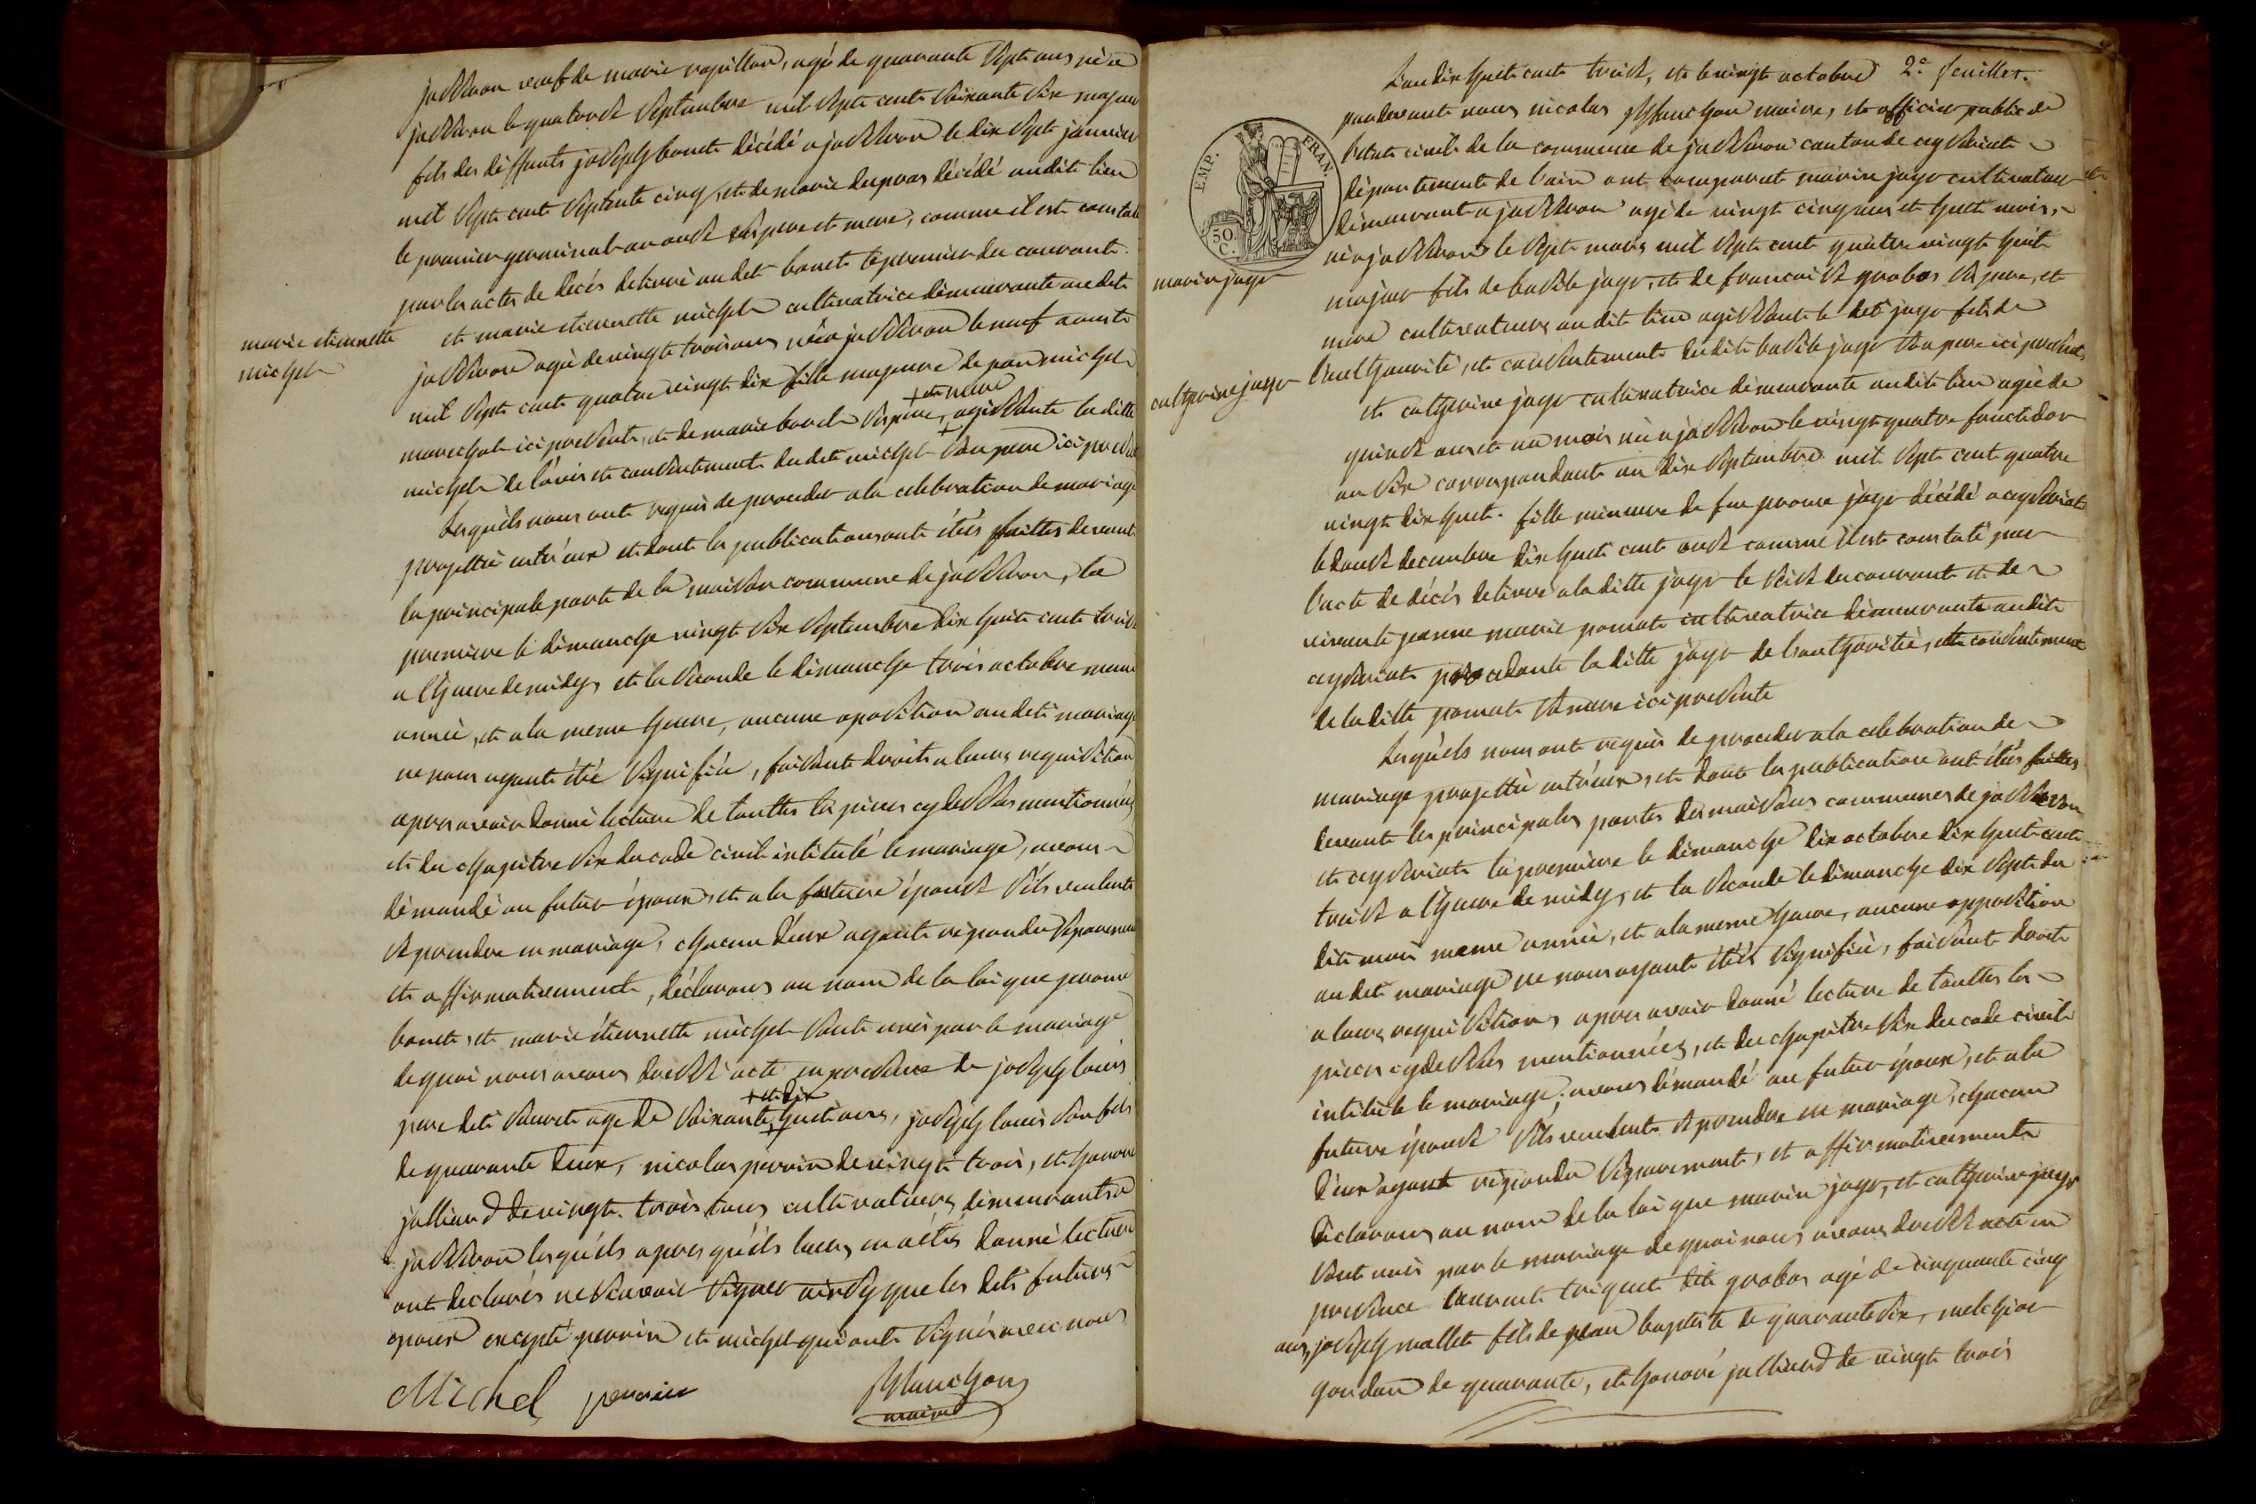 jasseron veuf de marie rapillon, agé de quarante sept ans né a
jasseron le quatorse septembre mil sept cent soixante six majeur
fils des déffunts joseph bonet décédé a jasseron le dix sept janvier
mil sept cent septente cinq, et de marie dupras décédé audit lieu
le premier germinal an onse ses pere et mere, comme il est constaté
par les actes de decés delivré audet bonet le premier du courant
marie etiennette
michel
et marie etiennette michel cultivatrice démeurante audet
jasseron agée de vingt trois ans née a jasseron le neuf aoust
mil sept cent quatre vingt dix fille majeure de jean michel
+ et mere
marechal ici present, et de marie borel ses pere, + agissante la ditte
michel de l'avis et consentement dudet michel son pere ici present
lesquèls nous ont requis de proceder a la celebration de mariage
projettée entr'eux et dont les publications ont étés faittes devant
la principale porte de la maison commune de jasseron, la
premiere le dimanche vingt six septembre dix huit cent treise
a l'heure de midy, et la seconde le dimanche trois octobre meme
année, et a la meme heure, aucune oposition audet mariage
ne nous ayant été signifiée, faisant droit a leurs requisition
apres avoir donné lecture de touttes les pieces cy dessus mentionnées
et du chapitre six du code civil intitulé le mariage, avons
démandé au futur époux, et a la future épouse s'ils veulent
se prendre en mariage, chacun d'eux ayant repondu separement
et affirmativement, déclarons au nom de la loi que jerome
bonet, et marie étiennette michel sont unis par le mariage
de quoi nous avons dressé acte en presence de joseph louis
+ et dix
pere det sauvet age de soixante + huit ans, joseph louis son fils
de quarante deux, nicolas perrin de vingt trois, et honoré
julliard de vingt trois tous cultivateurs démeurants a
jasseron lesquèls apres qu'ils leurs en a étés donné lecture
ont déclarés ne sçavoir signer ainsy que les dets futurs
epoux excepté perrin et michel qui ont signés avec nous
Michel perrin Blanchon
maire
2e feuillet.
L'an dix huit cent treise, et le vingt octobre
pardevant nous nicolas Blanchon maire, et officier public de
l'etat civil de la commune de jasseron canton de ceyseriat
département de l'ain ont comparut marin jayr cultivateur
démeurant a jasseron agé de vingt cinq ans et huit mois,
né a jasseron le sept mars mil sept cent quatre vingt huit
EMP. FRAN.
50. C.
marin jayr
majeur fils de basile jayr, et de francoise grobas ses pere, et
mere cultivateurs audit lieu agissant le det jayr fils de
l'authorité, et consentement dudit basile jayr son pere ici present
catherine jayr
et catherine jayr cultivatrice démeurante audit lieu agée de
quinse ans et un mois née a jasseron le vingt quatre fructidor
an six correspondant au dix septembre mil sept cent quatre
vingt dix huit. fille mineure de feu jerome jayr décédé a ceyseriat
le douse decembre dix huit cent onse comme il est constaté par
l'acte de décés delivré a la ditte jayr le seise du courant et de
vivante jeanne marie pomat cultivatrice démeurante audit
ceyseriat procedante la ditte jayr de l'authorité, et consentement
de la ditte pomat sa mere ici presente
lesquèls nous ont requis de proceder a la celebration de
mariage projettée entr'eux, et dont les publications ont étés faittes
devant les principales portes des maisons communes de jasseron
et ceyseriat la premiere le dimanche dix octobre dix huit cent
treise a l'heure de midy, et la seconde le dimanche dix sept du
dit mois meme année, et a la meme heure, aucune opposition
au det mariage ne nous ayant étés signifiée, faisant droit
a leurs requisitions apres avoir donné lecture de touttes les
pieces cy dessus mentionnées, et du chapitre six du code civil
intitulé le mariage, avons démandé au futur époux, et a la
future épouse s'ils veulent se prendre en mariage, chacun
d'eux ayant répondu séparement, et affirmativement
déclarons au nom de la loi que marin jayr, et catherine jayr
sont unis par le mariage de quoi nous avons dressé acte en
presence laurent triquet dit grobas agé de cinquante cinq
ans, joseph mallet fils de jean baptiste de quarante six, melchior
goudan de quarante, et honoré julliard de vingt trois